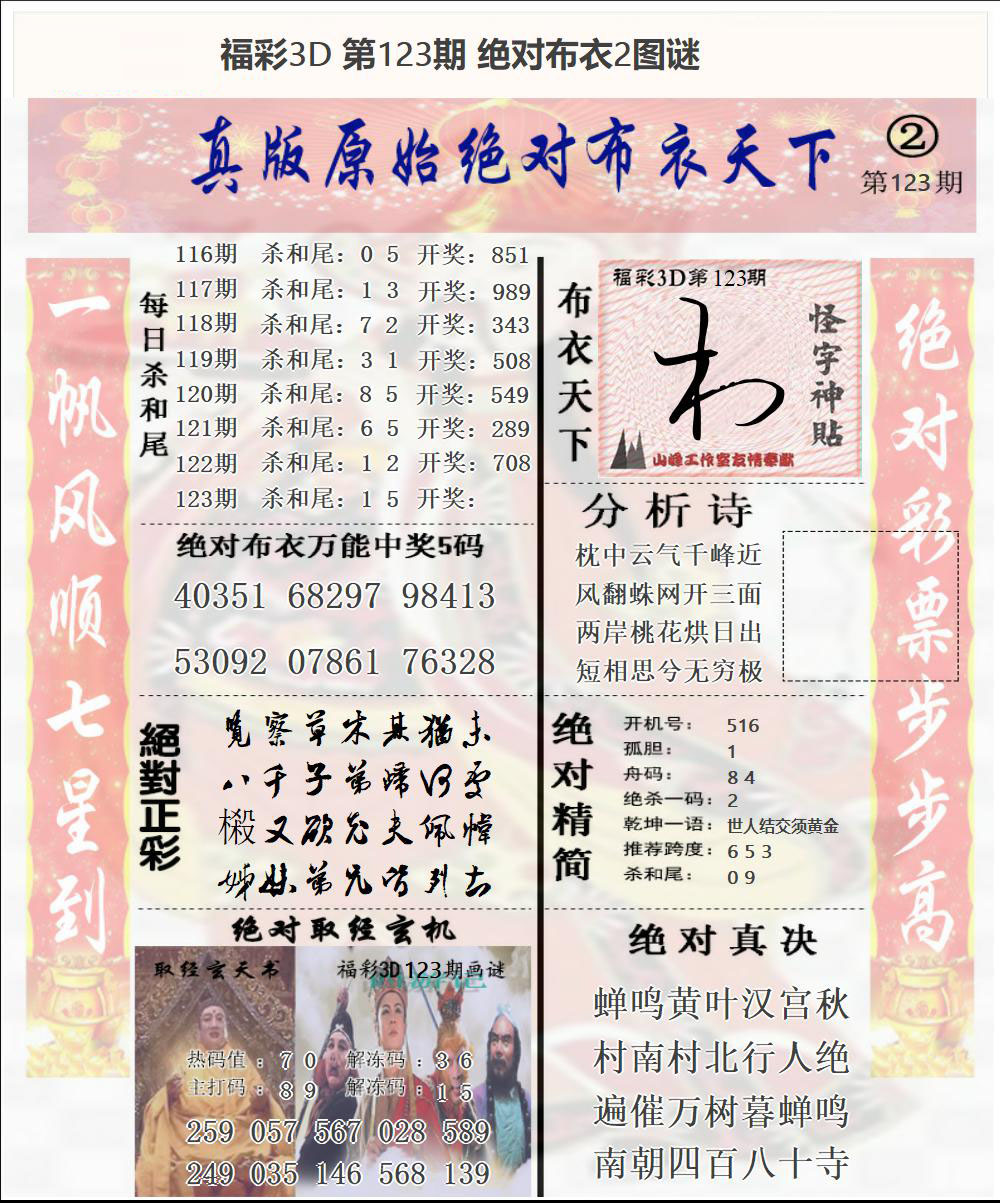 福彩3D 第123期 绝对布衣2图谜
真版原始绝对布衣天下
②
第123期
一帆风顺七星到
每日杀和尾
116期 杀和尾：0 5 开奖：851
117期 杀和尾：1 3 开奖：989
118期 杀和尾：7 2 开奖：343
119期 杀和尾：3 1 开奖：508
120期 杀和尾：8 5 开奖：549
121期 杀和尾：6 5 开奖：289
122期 杀和尾：1 2 开奖：708
123期 杀和尾：1 5 开奖：
绝对布衣万能中奖5码
40351 68297 98413
53092 07861 76328
絕對正彩
覽察草木其猶未
八千子弟歸何處
又欲
姊妹弟兄皆列土
绝对取经玄机
取经玄天书
福彩3D123期画谜
热码值：7 0 解冻码：3 6
主打码：8 9 解冻码：1 5
259 057 567 028 589
249 035 146 568 139
布衣天下
福彩3D第123期
怪字神貼
山峰工作室友情奉献
分析诗
枕中云气千峰近
风翻蛛网开三面
两岸桃花烘日出
短相思兮无穷极
绝对精简
开机号： 516
孤胆： 1
舟码： 8 4
绝杀一码： 2
乾坤一语：世人结交须黄金
推荐跨度： 6 5 3
杀和尾： 0 9
绝对真决
蝉鸣黄叶汉宫秋
村南村北行人绝
遍催万树暮蝉鸣
南朝四百八十寺
绝对彩票步步高